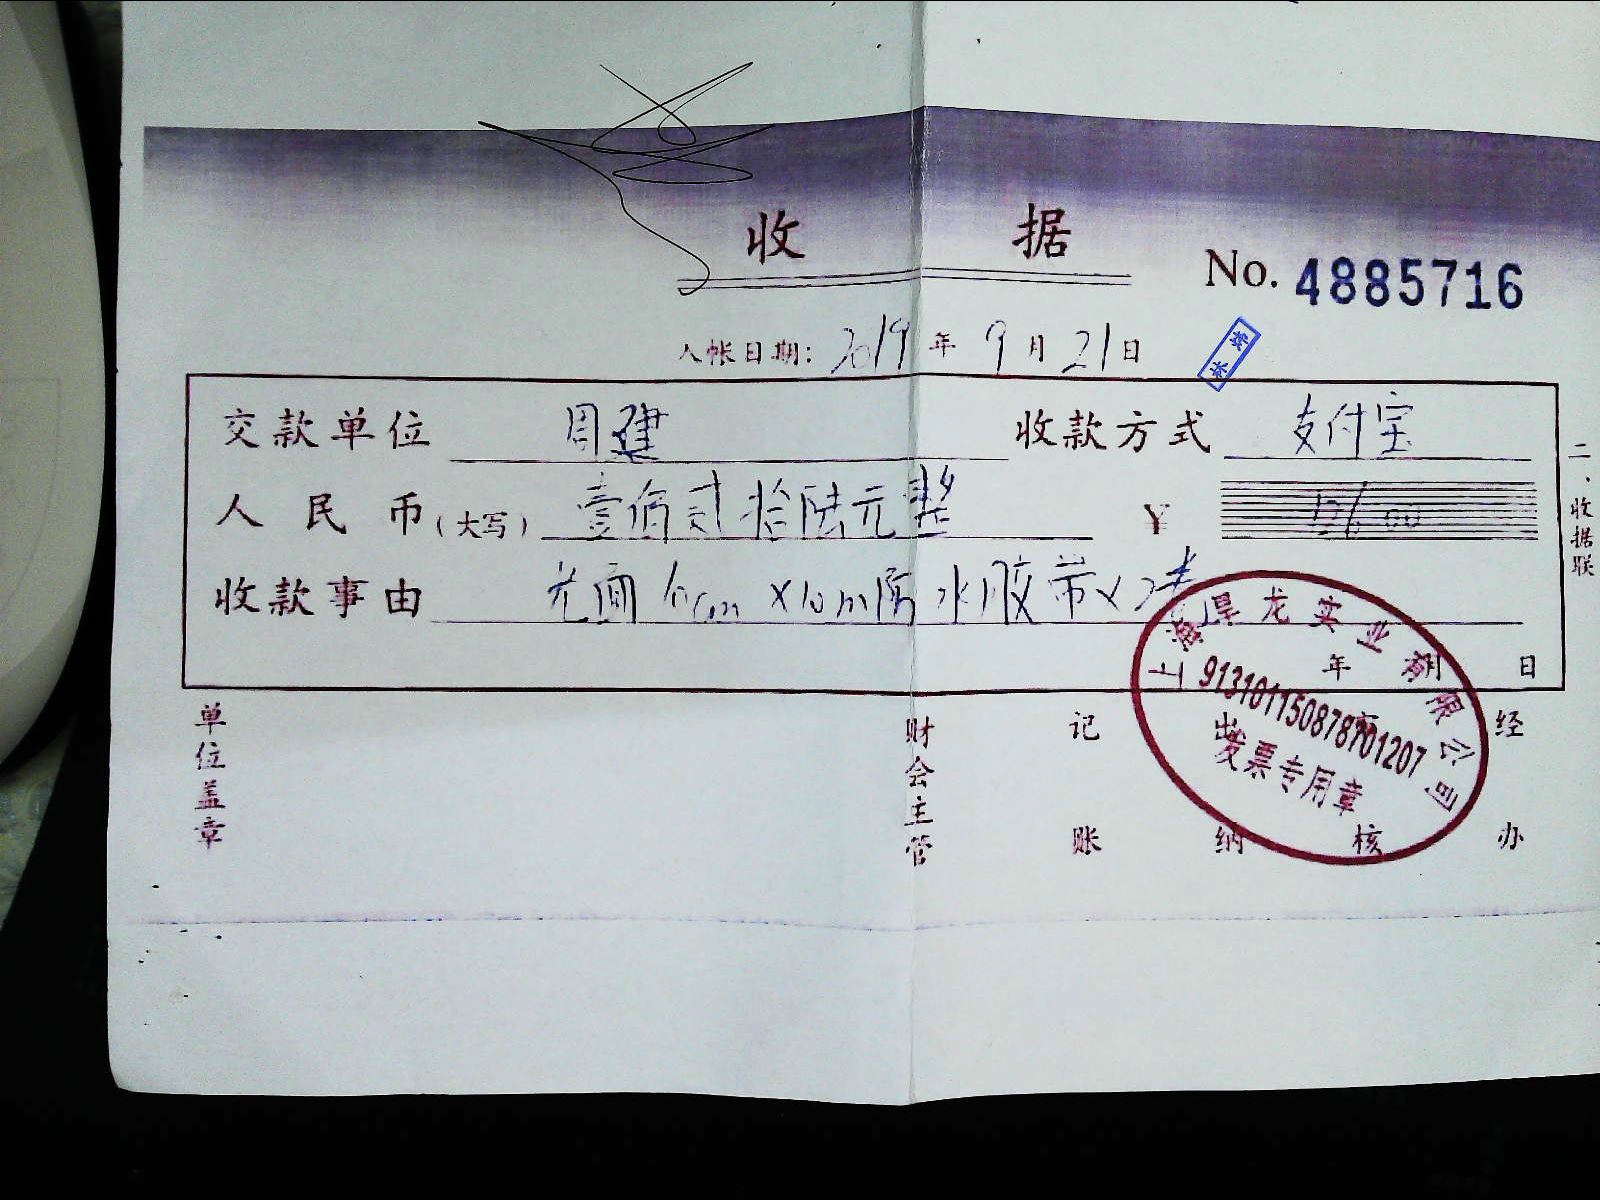 收 据
No. 4885716
入帐日期: 2019 年 9 月 21 日
交款单位 周建 收款方式 支付宝
人民币(大写) 壹佰贰拾陆元整 ¥
收款事由 光面 10m防水胶带×2
年 日
二、收据联
单位盖章 财会主管 记账 出纳 审核 经办
上海昊龙实业有限公司
913101150878701207
发票专用章